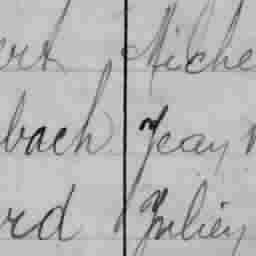 ert Miche
bach Jean
rd Julien